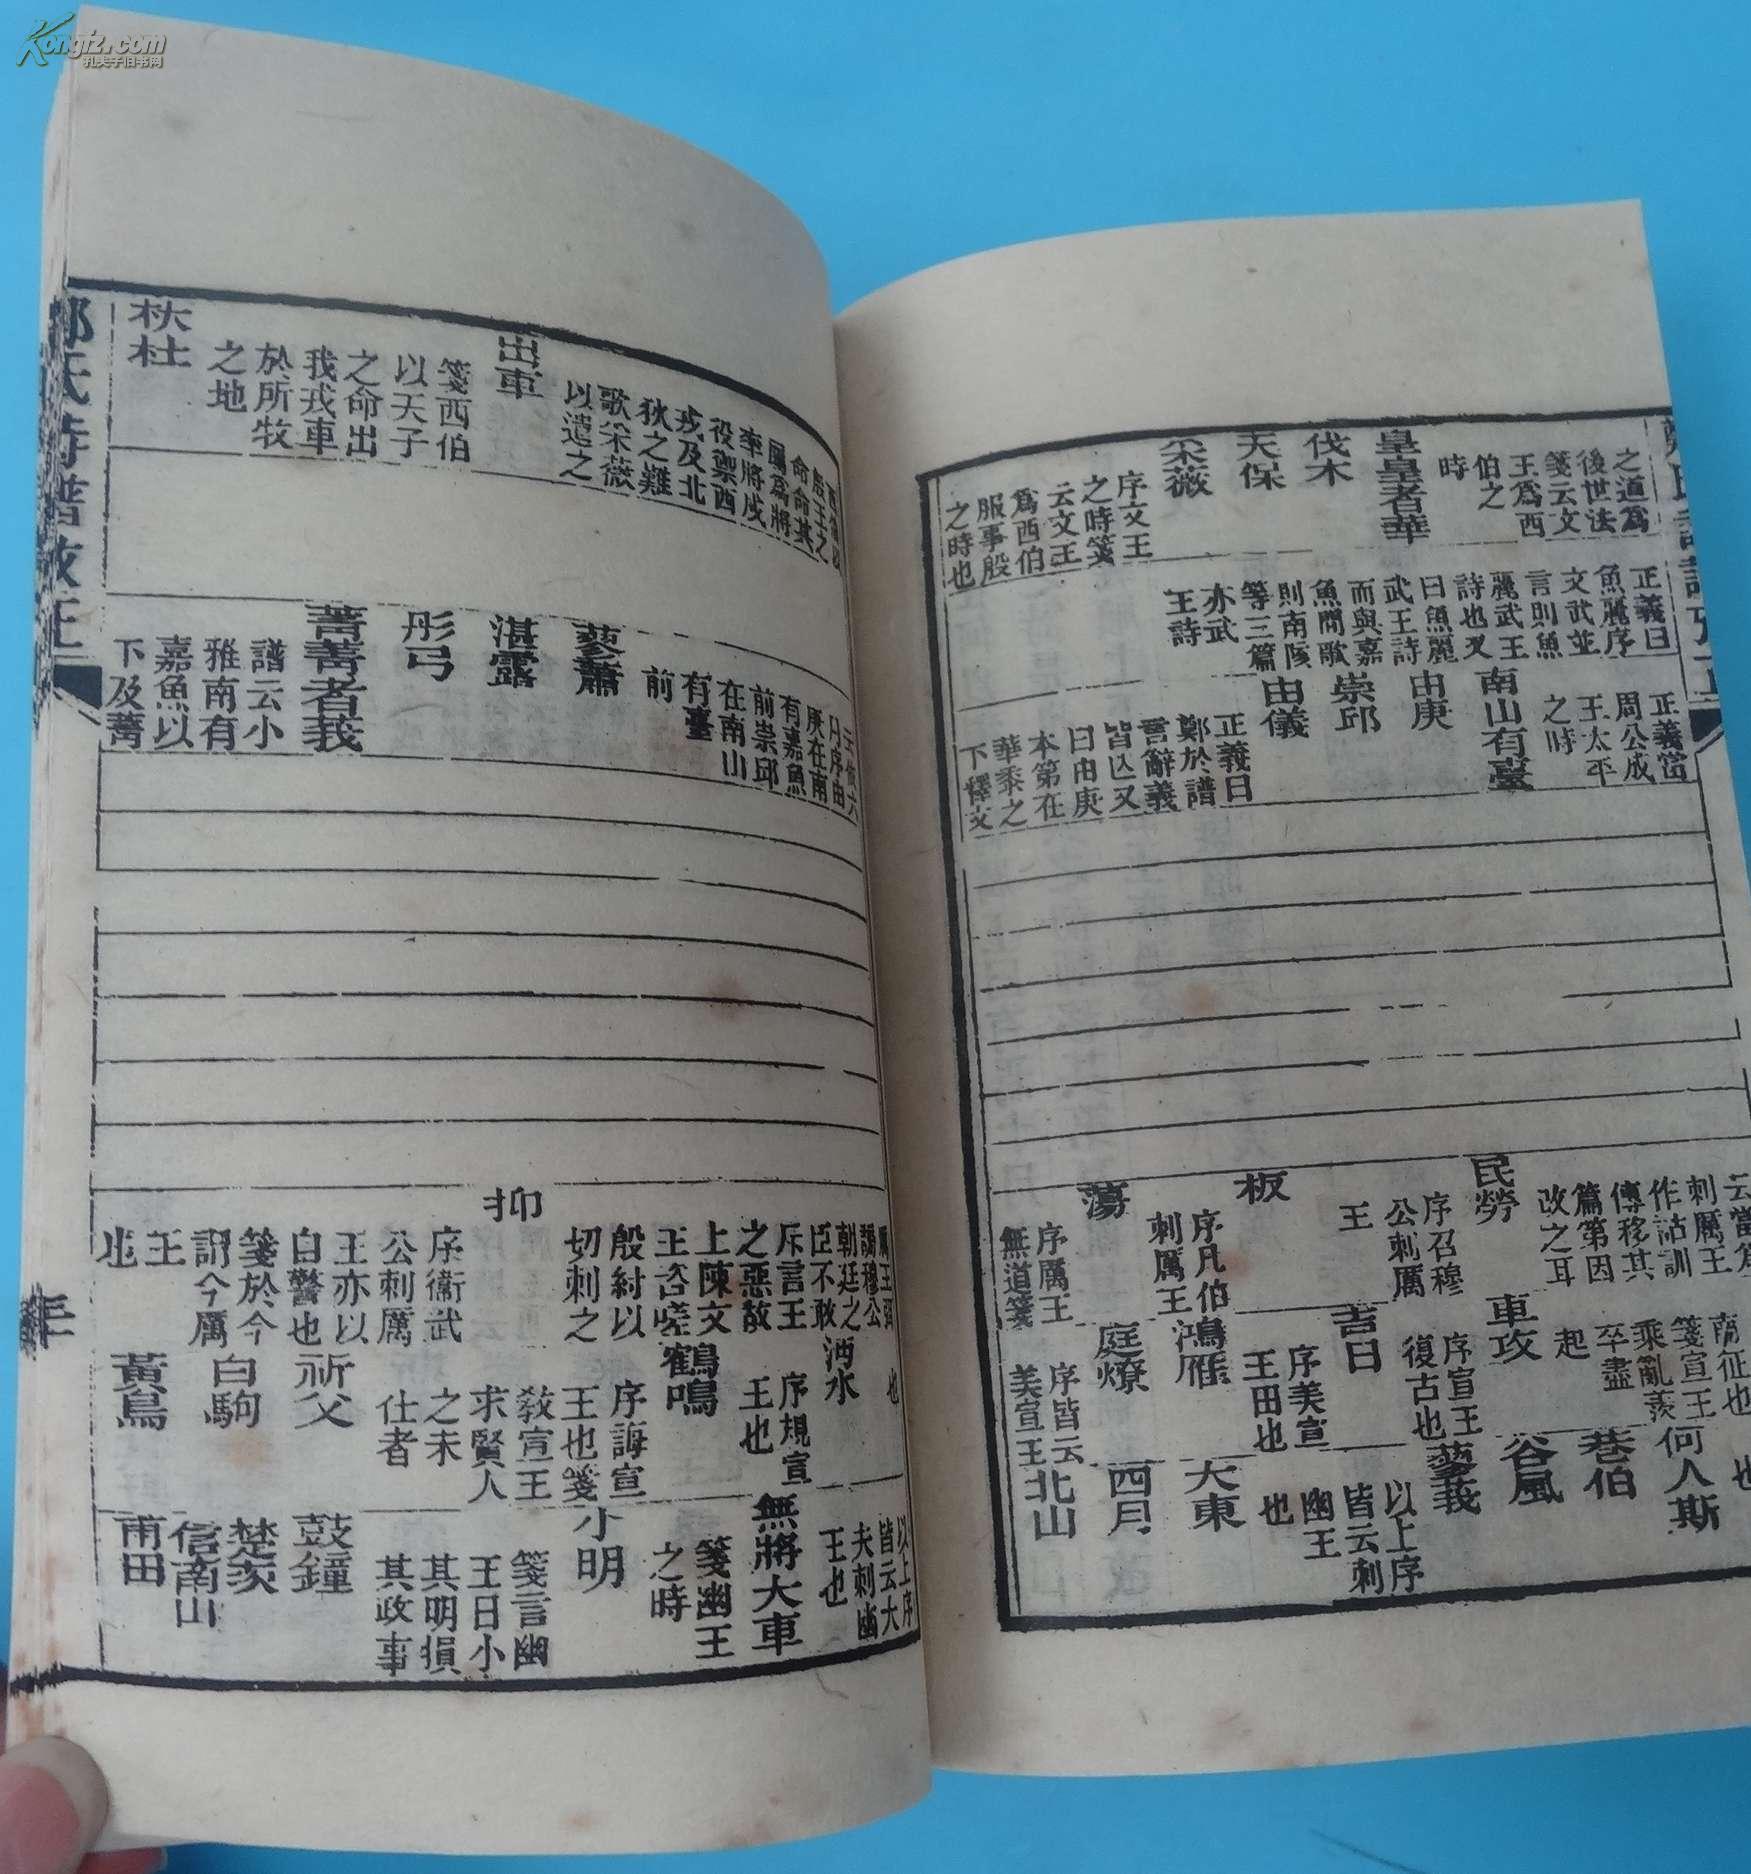 之道爲
後世法
箋云文
王爲西
伯之
時
皇皇者華
伐木
天保
采薇
序文王
之時箋
云文王
爲西伯
服事殷
之時也
正義曰
魚麗序
文武並
言則魚
麗武王
詩也又
曰魚麗
武王詩
而與嘉
魚間歌
則南陔
等三篇
亦武
王詩
正義當
周公成
王太平
之時
南山有臺
由庚
崇邱
由儀
正義曰
鄭於譜
言辭義
皆亡又
曰由庚
本第在
華黍之
下釋文
云當爲
刺厲王
作詁訓
傳移其
篇第因
改之耳
民勞
序召穆
公刺厲
王
板
序凡伯
刺厲王
蕩
序厲王
無道箋
南征也
箋宣王
乘亂羨
卒盡
起
車攻
序宣王
復古也
吉日
序美宣
王田也
鴻雁
庭燎
序皆云
美宣王
也
何人斯
巷伯
谷風
蓼莪
以上序
皆云刺
幽王
也
大東
四月
北山
殷王之
命命其
屬爲將
率將戍
役禦西
戎及北
狄之難
歌采薇
以遣之
出車
箋西伯
以天子
之命出
我戎車
於所牧
之地
杕杜
月序由
庚在南
有嘉魚
前崇邱
在南山
有臺
前
蓼蕭
湛露
彤弓
菁菁者莪
譜云小
雅南有
嘉魚以
下及菁
厲王弭
謗穆公
朝廷之
臣不敢
斥言王
之惡故
上陳文
王咨嗟
殷紂以
切刺之
抑
序衞武
公刺厲
王亦以
自警也
箋於今
謂今厲
王
也
也
沔水
序規宣
王也
鶴鳴
序誨宣
王也箋
敎宣王
求賢人
之未
仕者
祈父
白駒
黃鳥
以上序
皆云大
夫刺幽
王也
無將大車
箋幽王
之時
小明
箋言幽
王日小
其明損
其政事
鼓鐘
楚茨
信南山
甫田
鄭氏詩譜攷正
Kongfz.com
孔夫子旧书网